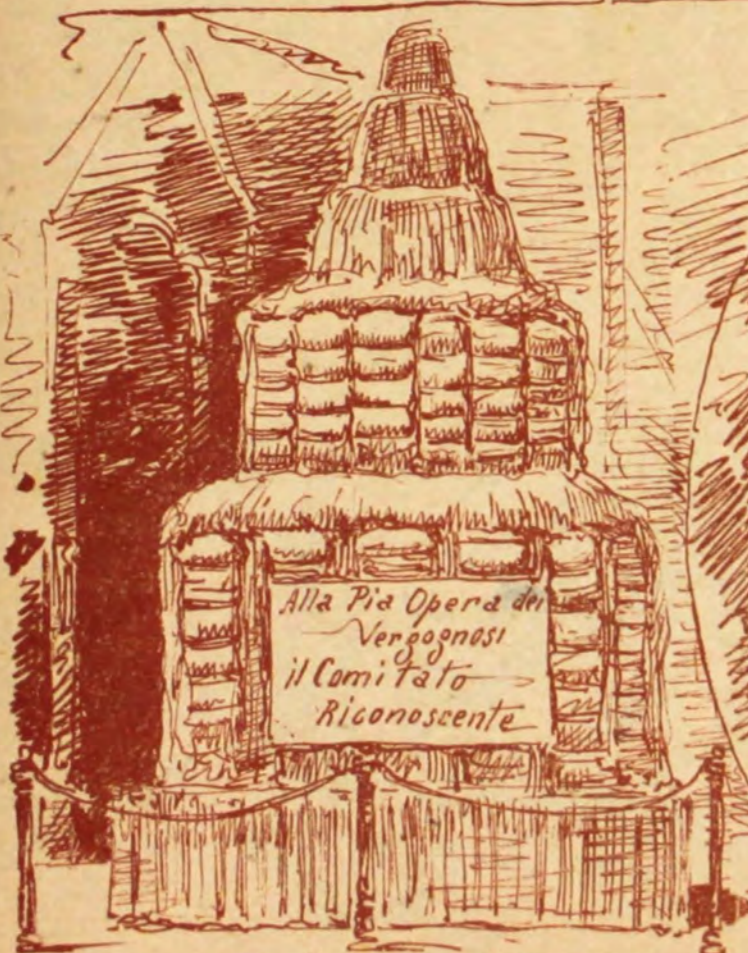 Alla Pia Opera dei
Vergognosi
il Comitato
Riconoscente